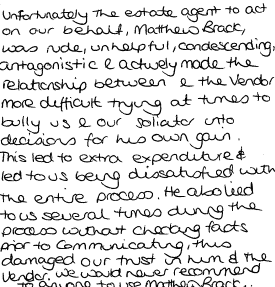 Unfortunately the estate agent to act
on our behalf, Matthew Brack,
was rude, unhelpful, condescending,
antagonistic & actively made the
relationship between & the Vendor
more difficult trying at times to
bully us & our solicitor into
decisions for his own gain.
This led to extra expenditure &
led to us being dissatisfied with
the entire process. He also lied
to us several times during the
process without checking facts
prior to communicating, this
damaged our trust in him & the
Vendor. We would never recommend
to anyone to use Matthew Brack.